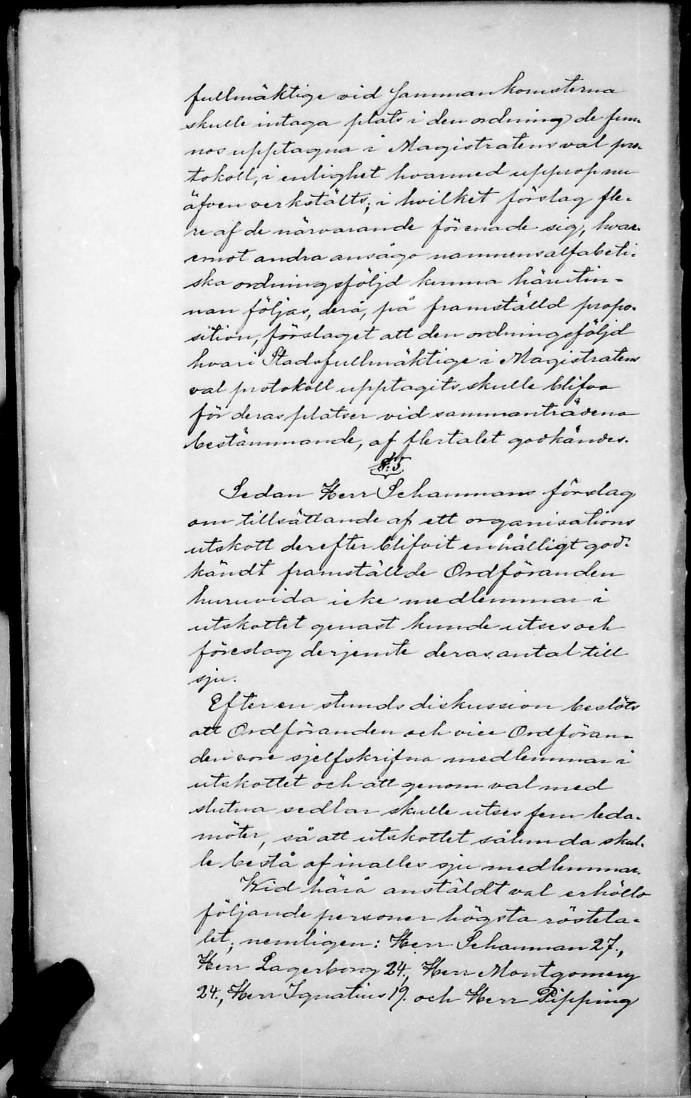 fullmäktige vid sammankomsterna
skulle intaga plats i den ordning de fun-
nos upptagna i Magistratens val pro-
tokoll, i enlighet hvarmed upprop nu
äfven verkstälts; i hvilket förslag fle-
re af de närvarande förenade sig, hvar-
emot andra ansågo namnens alfabeti-
ska ordningsföljd kunna härutin-
nan följas, derå, på framställd propo-
sition, förslaget att den ordningsföljd
hvari Stadsfullmäktige i Magistratens
val protokoll upptagits skulle blifva
för deras platser vid sammanträdena
bestämmande, af flertalet godkändes.
§:5.
Sedan Herr Schaumans förslag
om tillsättande af ett organisations
utskott derefter blifvit enhälligt god-
kändt framställde Ordföranden
huruvida icke medlemmar i
utskottet genast kunde utses och
föreslog derjemte deras antal till
sju.
Efter en stunds diskussion beslöts
att Ordföranden och vice Ordföran-
den vore sjelfskrifna medlemmar i
utskottet och att genom val med
slutna sedlar skulle utses fem leda-
möter, så att utskottet sålunda skul-
le bestå af inalles sju medlemmar.
Vid härå anstäldt val erhöllo
följande personer högsta rösteta-
let; nemligen: Herr Schauman 27.,
Herr Lagerborg 24., Herr Montgomery
24., Herr Ignatius 19. och Herr Pipping